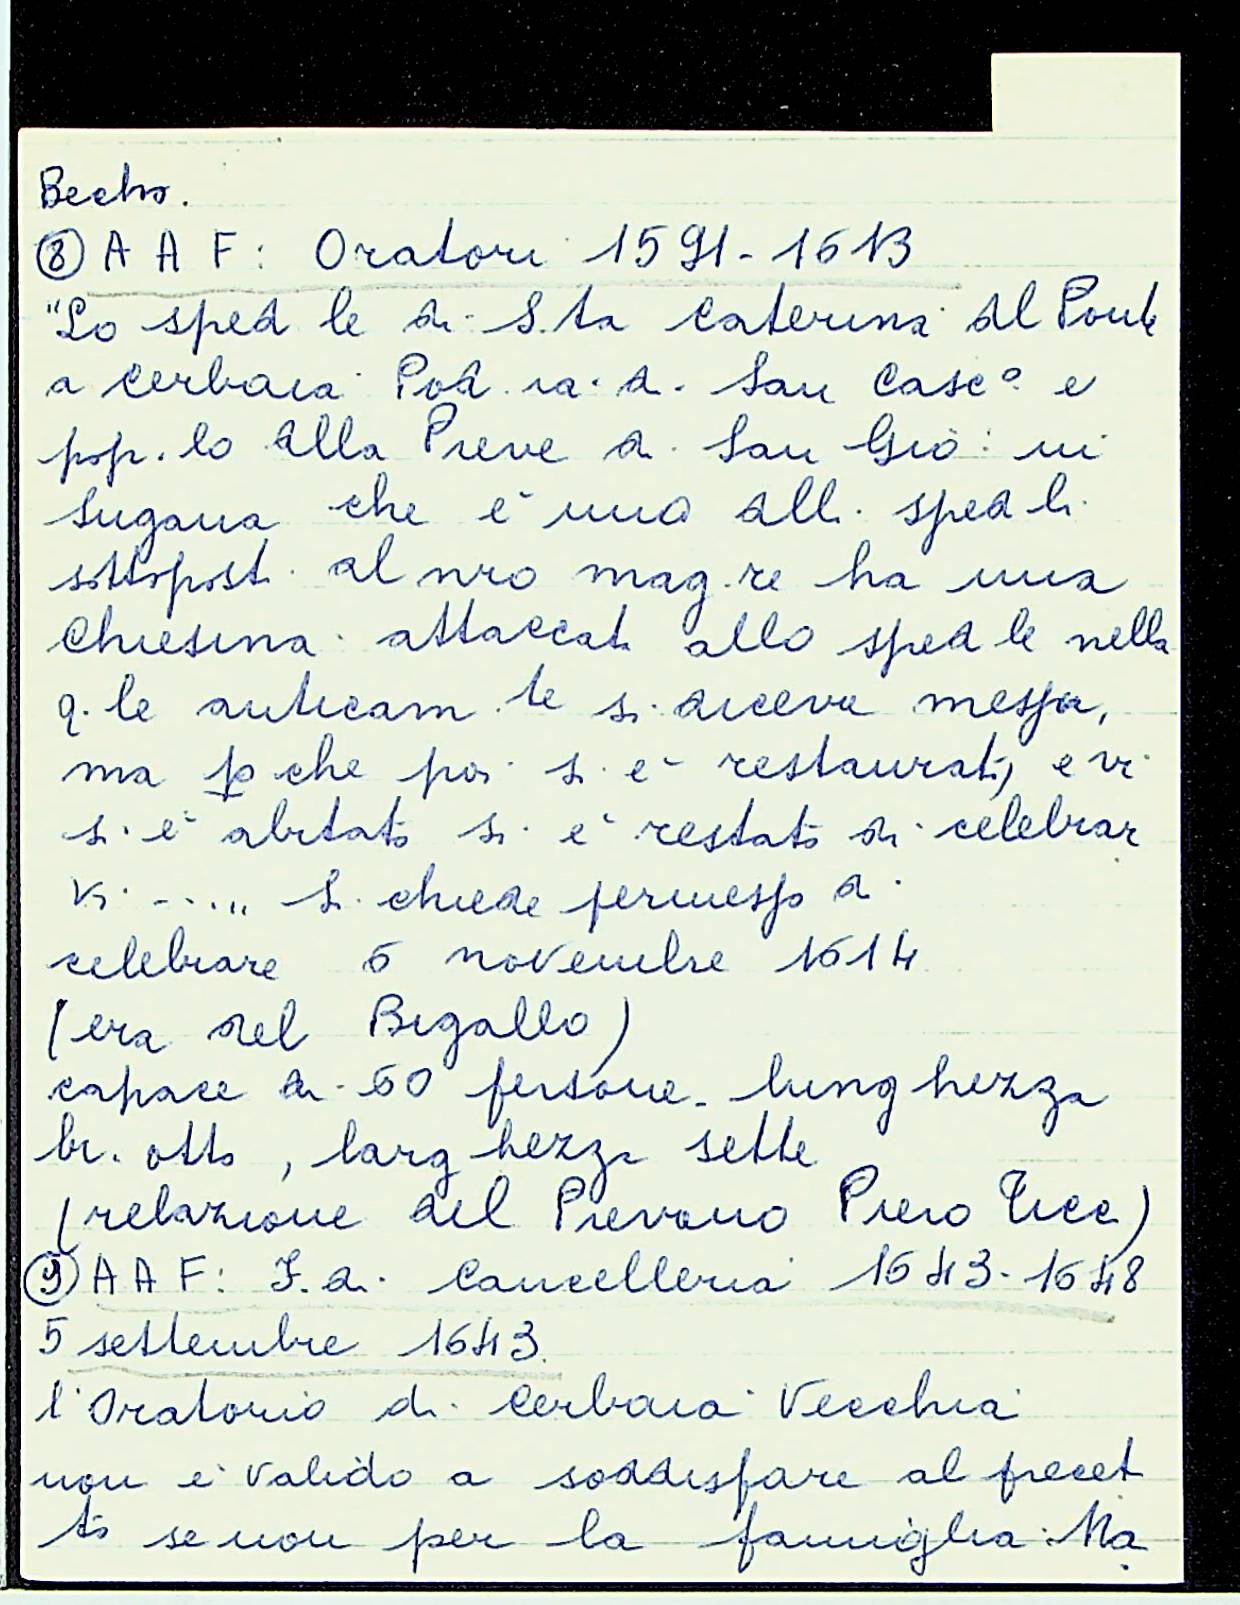 Becho.
⑧ A A F: Oratori 1591-1613
"Lo sped le di S.ta Caterina al Ponte
a Cerbaia Pod. ia. di San Casc.º e
pop.lo della Pieve di San Giò: in
Sugana che è uno dell. sped li
sottopost. al nro mag.re ha una
Chiesina attaccat. allo sped le nella
q.le anticam.te si diceva messa,
ma p che poi si è restaurat, e vi
si è abitato si è restato di celebrar
vi ..... Si chiede permesso di
celebrare 6 novembre 1614
(era del Bigallo)
capace di 60 persone - lunghezza
br. otto, larghezza sette
(relazione del Pievano Piero Ticci)
⑨ A A F: F. di Cancelleria 1643-1648
5 settembre 1643.
l'Oratorio di Cerbaia Vecchia
non è valido a soddisfare al precet
to se non per la famiglia. Ma